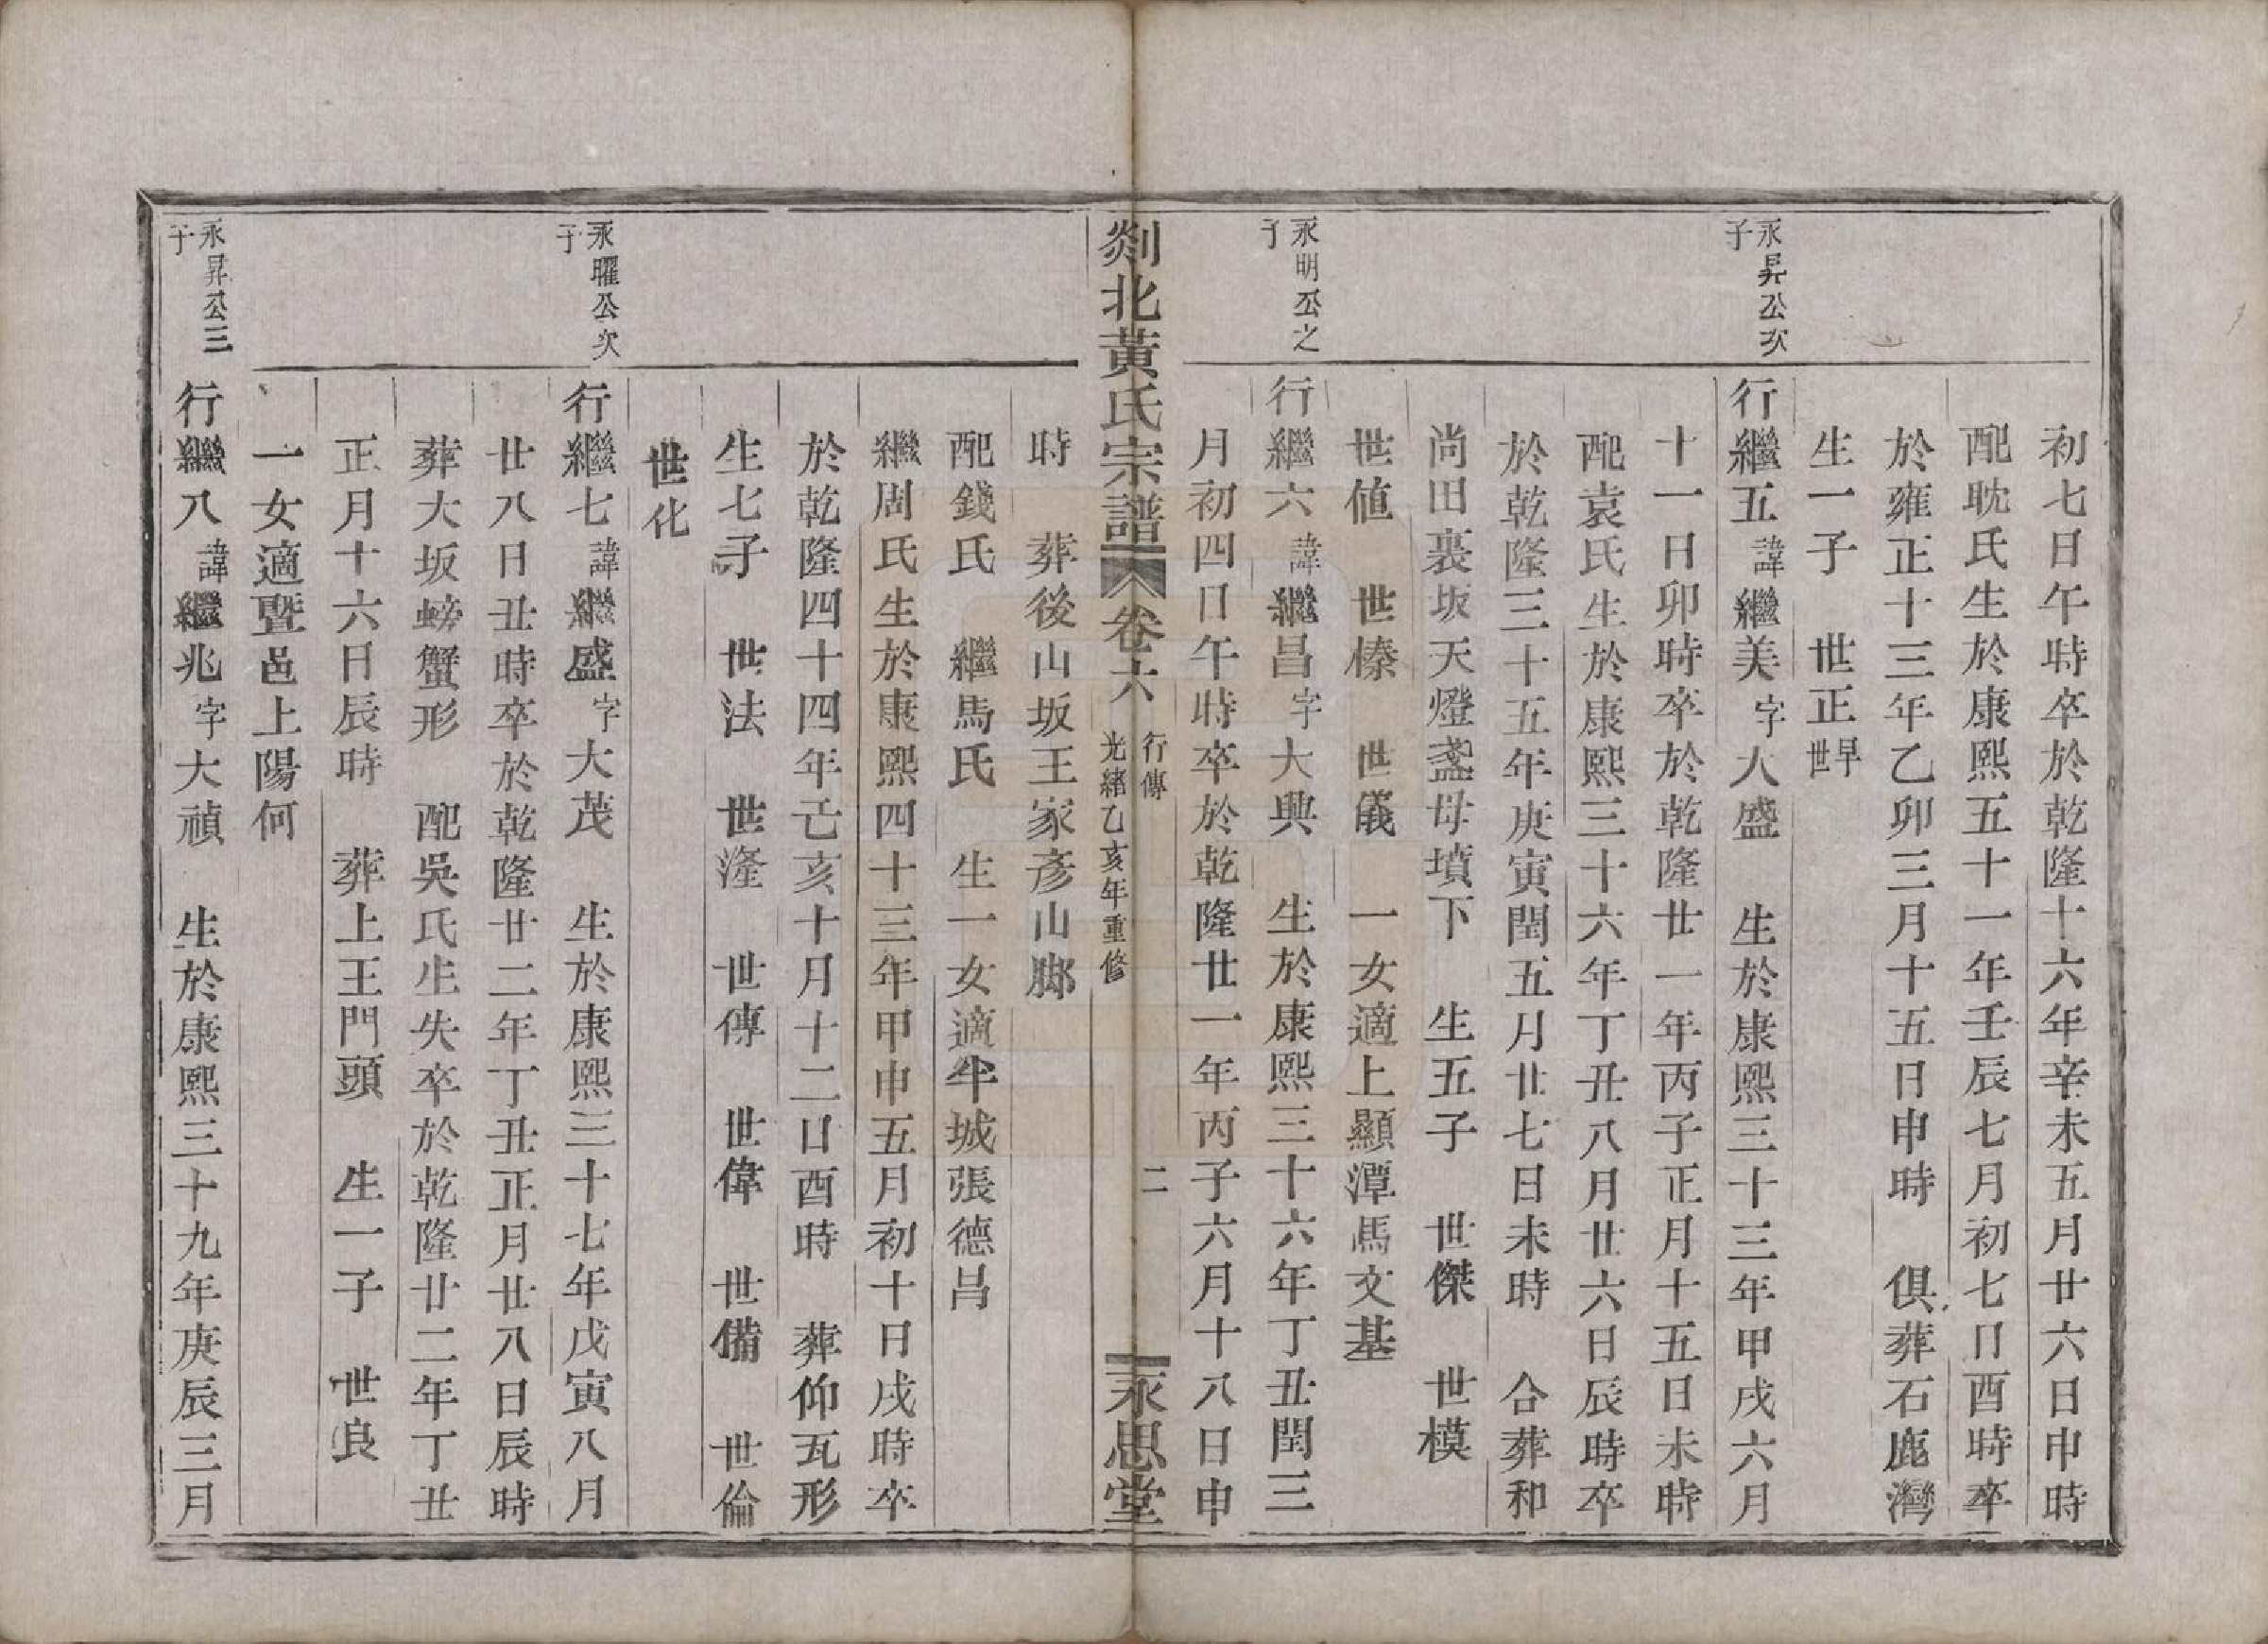 初七日午時卒於乾隆十六年辛未五月廿六日申時
配耽氏生於康熙五十一年壬辰七月初七日酉時卒
於雍正十三年乙卯三月十五日申時　俱葬石鹿灣
生一子　世正早世
永昇公次子
行繼五諱繼美字大盛　生於康熙三十三年甲戌六月
十一日卯時卒於乾隆廿一年丙子正月十五日未時
配袁氏生於康熙三十六年丁丑八月廿六日辰時卒
於乾隆三十五年庚寅閏五月廿七日未時　合葬和
尚田裏坂天燈盞母墳下　生五子　世傑　世模
世值　世榛　世儀　一女適上顯潭馬文基
永明公之子
行繼六諱繼昌字大興　生於康熙三十六年丁丑閏三
月初四日午時卒於乾隆廿一年丙子六月十八日申
剡北黃氏宗譜　卷六　行傳　光緒乙亥年重修　二　永思堂
時　葬後山坂王家彥山腳
配錢氏　繼馬氏　生一女適半城張德昌
繼周氏生於康熙四十三年甲申五月初十日戌時卒
於乾隆四十四年己亥十月十二日酉時　葬仰瓦形
生七子　世法　世漋　世傳　世偉　世備　世倫
世化
永曜公次子
行繼七諱繼盛字大茂　生於康熙三十七年戊寅八月
廿八日丑時卒於乾隆廿二年丁丑正月廿八日辰時
葬大坂螃蟹形　配吳氏生失卒於乾隆廿二年丁丑
正月十六日辰時　葬上王門頭　生一子　世良
一女適暨邑上陽何
永昇公三子
行繼八諱繼兆字大禎　生於康熙三十九年庚辰三月